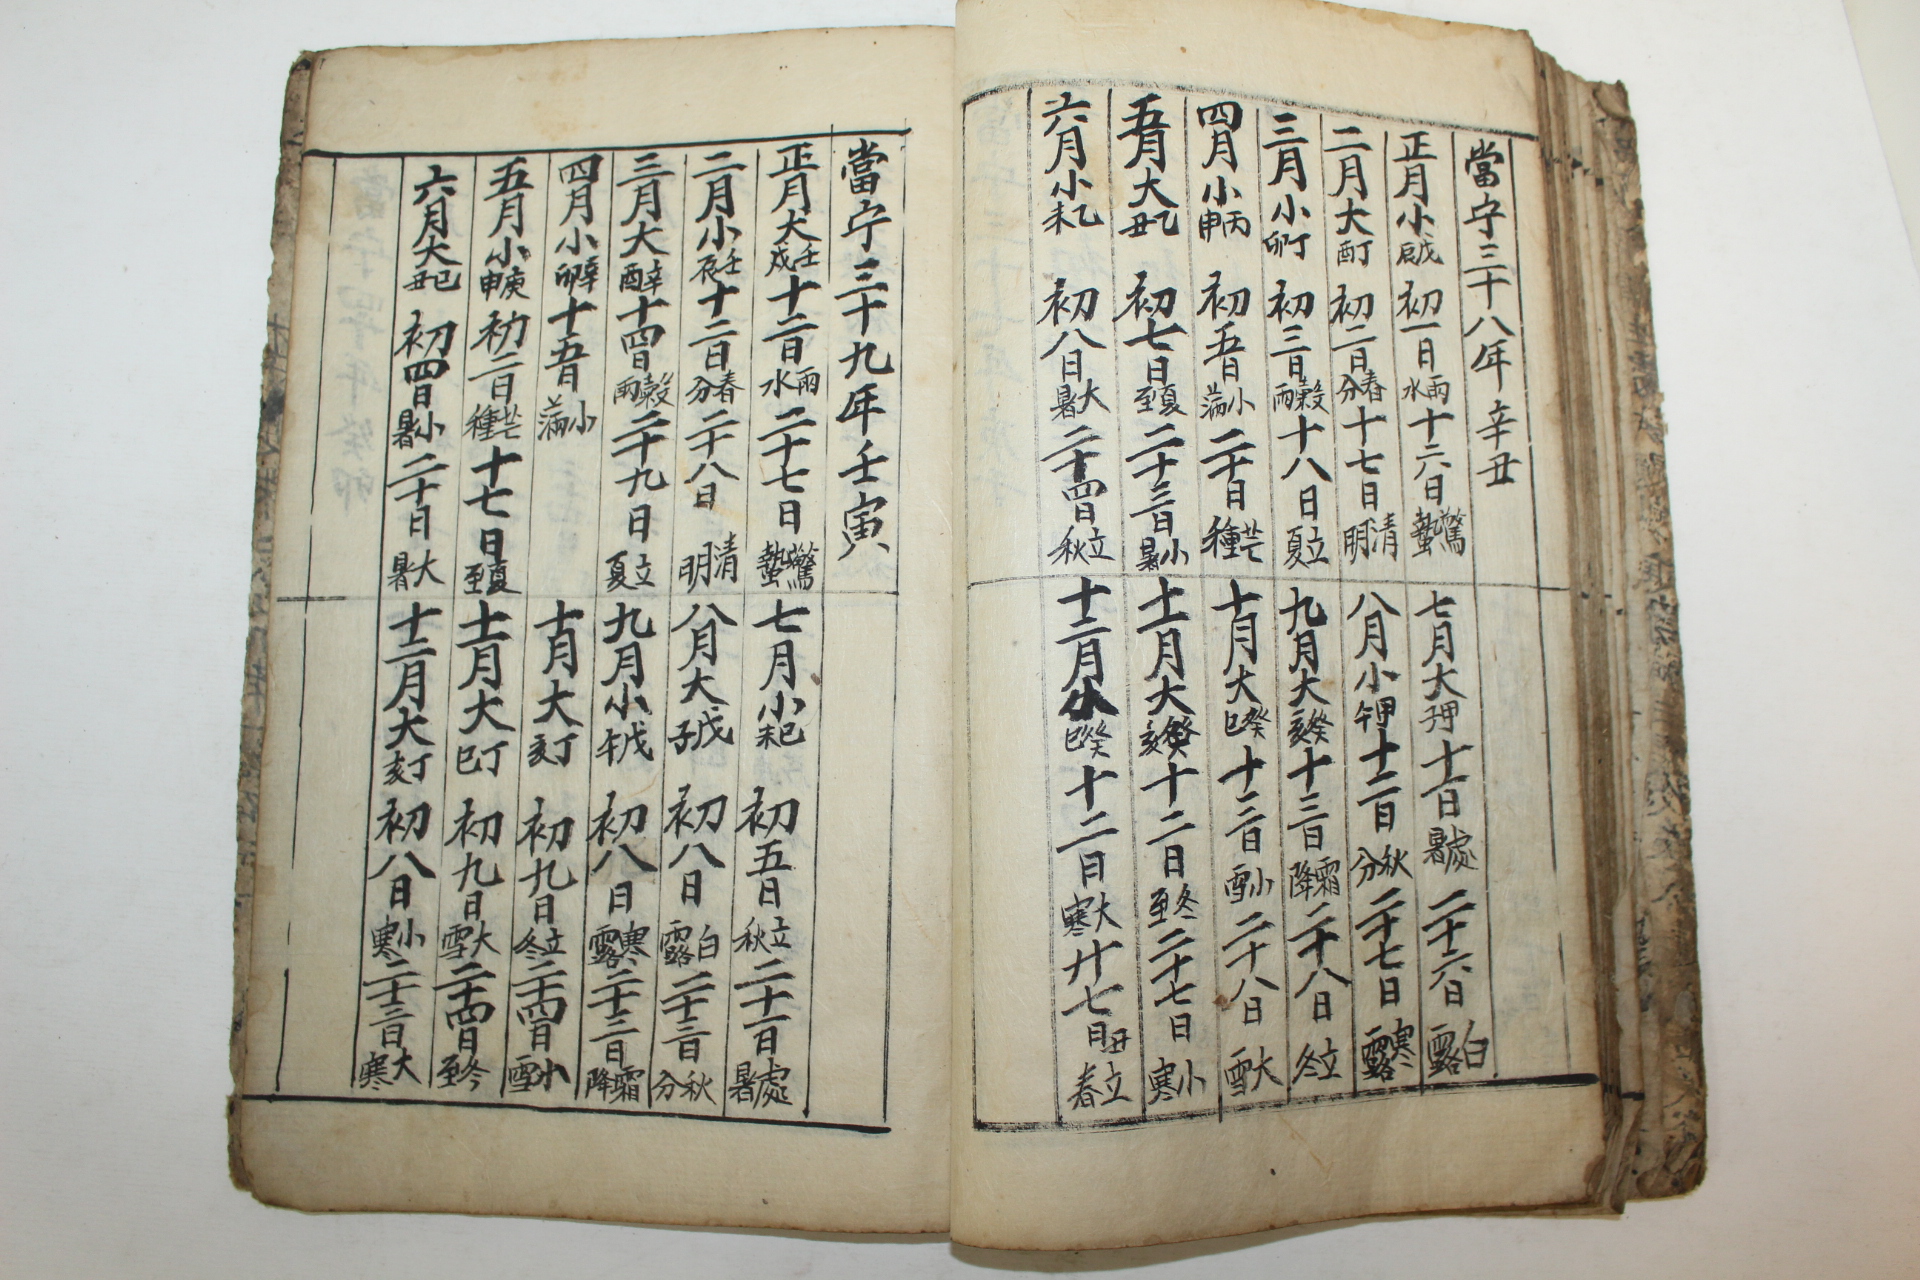 當宁三十八年辛丑
正月小戊辰初一日雨水十六日驚蟄
二月大丁酉初二日春分十七日清明
三月小丁卯初三日穀雨十八日立夏
四月小丙申初五日小滿二十日芒種
五月大乙丑初七日夏至二十三日小暑
六月小乙未初八日大暑二十四日立秋
七月大甲子十一日處暑二十六日白露
八月小甲午十二日秋分二十七日寒露
九月大癸亥十三日霜降二十八日立冬
十月大癸巳十三日小雪二十八日大雪
十一月大癸亥十二日冬至二十七日小寒
十二月小癸巳十二日大寒廿七日丑立春
當宁三十九年壬寅
正月大壬戌十二日雨水二十七日驚蟄
二月小壬辰十二日春分二十八日清明
三月大辛酉十四日穀雨二十九日立夏
四月小辛卯十五日小滿
五月小庚申初二日芒種十七日夏至
六月大己丑初四日小暑二十日大暑
七月小己未初五日立秋二十一日處暑
八月大戊子初八日白露二十三日秋分
九月小戊午初八日寒露二十三日霜降
十月大丁亥初九日立冬二十四日小雪
十一月大丁巳初九日大雪二十四日冬至
十二月大丁亥初八日小寒二十三日大寒